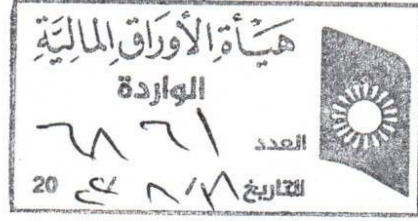 هيأة الأوراق المالية
الواردة
العدد ٦٨٦١
التاريخ 20